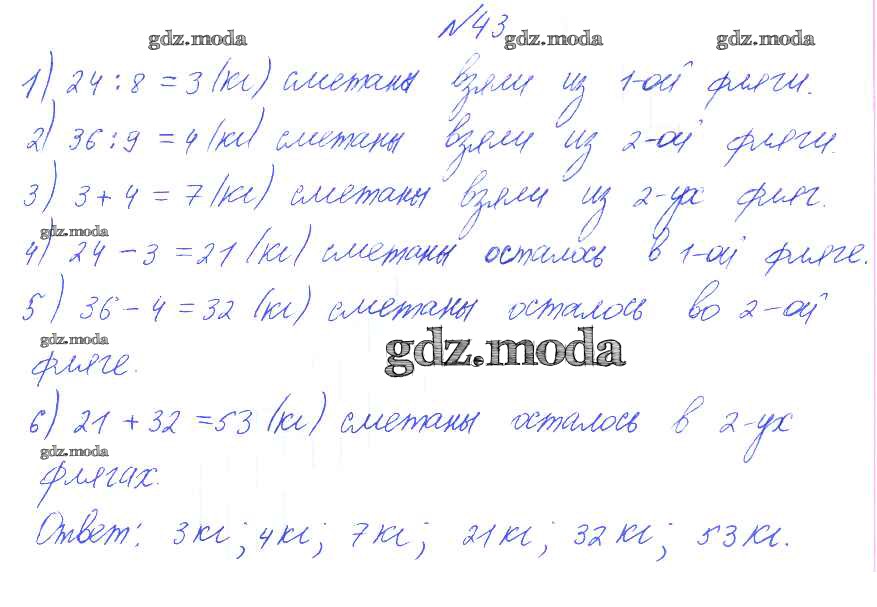 №43
gdz.moda gdz.moda gdz.moda
1) 24 : 8 = 3 (кг) сметаны взяли из 1-ой фляги.
2) 36 : 9 = 4 (кг) сметаны взяли из 2-ой фляги.
3) 3 + 4 = 7 (кг) сметаны взяли из 2-ух фляг.
gdz.moda
4) 24 - 3 = 21 (кг) сметаны осталось в 1-ой фляге.
5) 36 - 4 = 32 (кг) сметаны осталось во 2-ой
gdz.moda gdz.moda
фляге.
6) 21 + 32 = 53 (кг) сметаны осталось в 2-ух
gdz.moda
флягах.
Ответ: 3 кг; 4 кг; 7 кг; 21 кг; 32 кг; 53 кг.